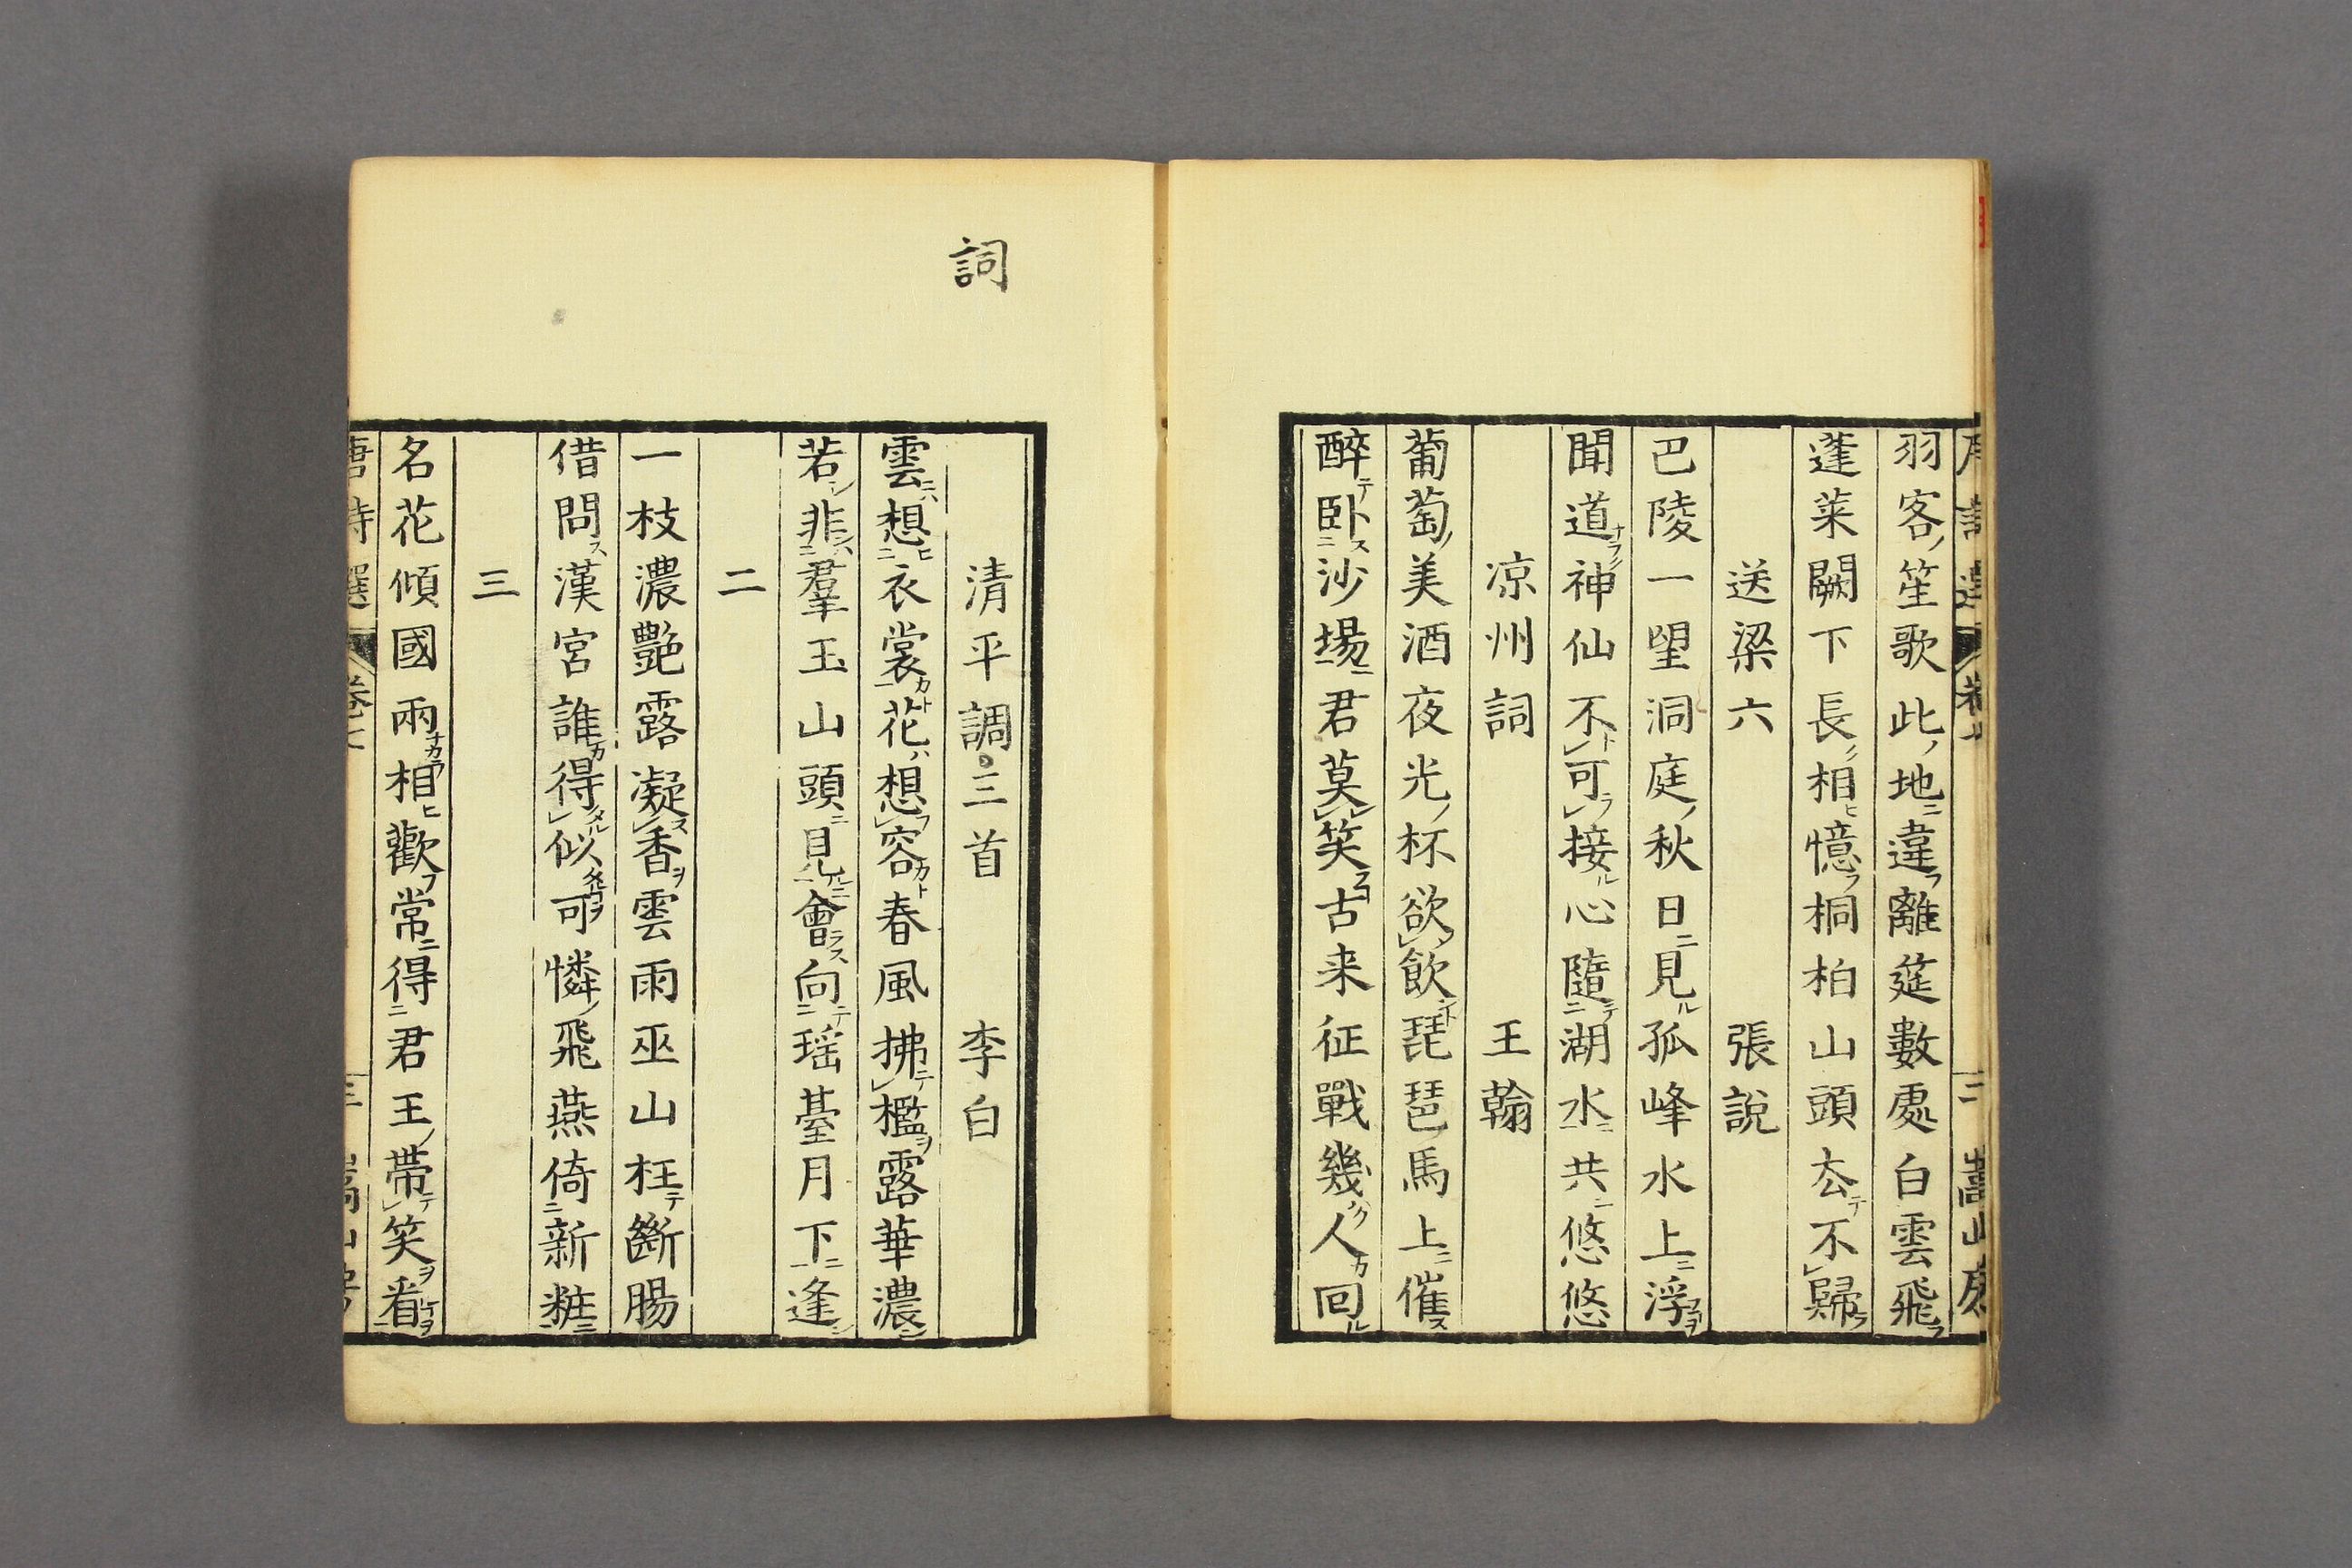 羽客笙歌此地違離筵數處白雲飛
蓬萊闕下長相憶桐柏山頭去不歸
送梁六 張說
巴陵一望洞庭秋日見孤峰水上浮
聞道神仙不可接心隨湖水共悠悠
凉州詞 王翰
葡萄美酒夜光杯欲飲琵琶馬上催
醉卧沙場君莫笑古来征戰幾人回
詞
清平調三首 李白
雲想衣裳花想容春風拂檻露華濃
若非羣玉山頭見會向瑶臺月下逢
二
一枝濃艷露凝香雲雨巫山枉斷腸
借問漢宮誰得似可憐飛燕倚新粧
三
名花傾國兩相歡常得君王帶笑看
唐詩選 卷七